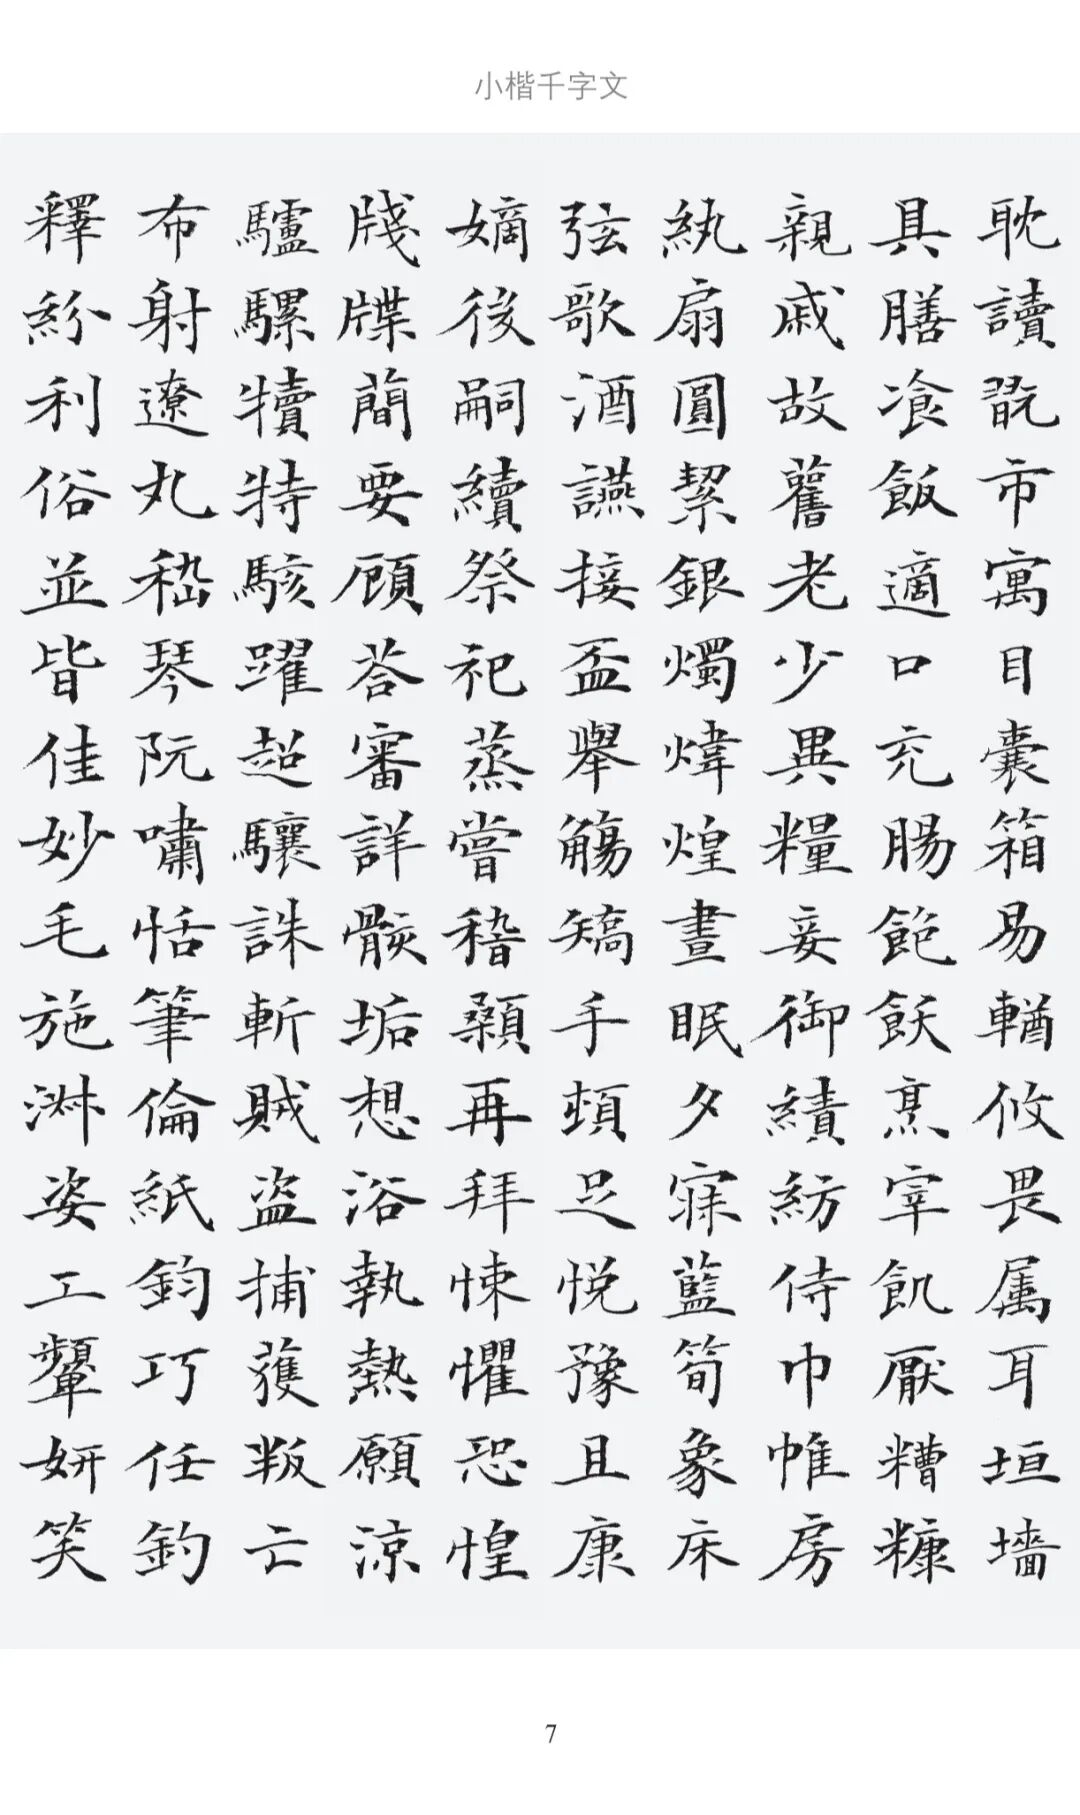 小楷千字文
耽讀翫市寓目囊箱易輶攸畏属耳垣墻
具膳飡飯適口充腸飽飫烹宰飢厭糟糠
親戚故舊老少異糧妾御績紡侍巾帷房
紈扇圓絜銀燭煒煌晝眠夕寐藍筍象床
弦歌酒讌接盃舉觴矯手頓足悅豫且康
嫡後嗣續祭祀蒸嘗稽顙再拜悚懼恐惶
牋牒簡要顧荅審詳骸垢想浴執熱願涼
驢騾犢特駭躍超驤誅斬賊盜捕獲叛亡
布射遼丸嵇琴阮嘯恬筆倫紙鈞巧任釣
釋紛利俗並皆佳妙毛施淑姿工顰妍笑
7